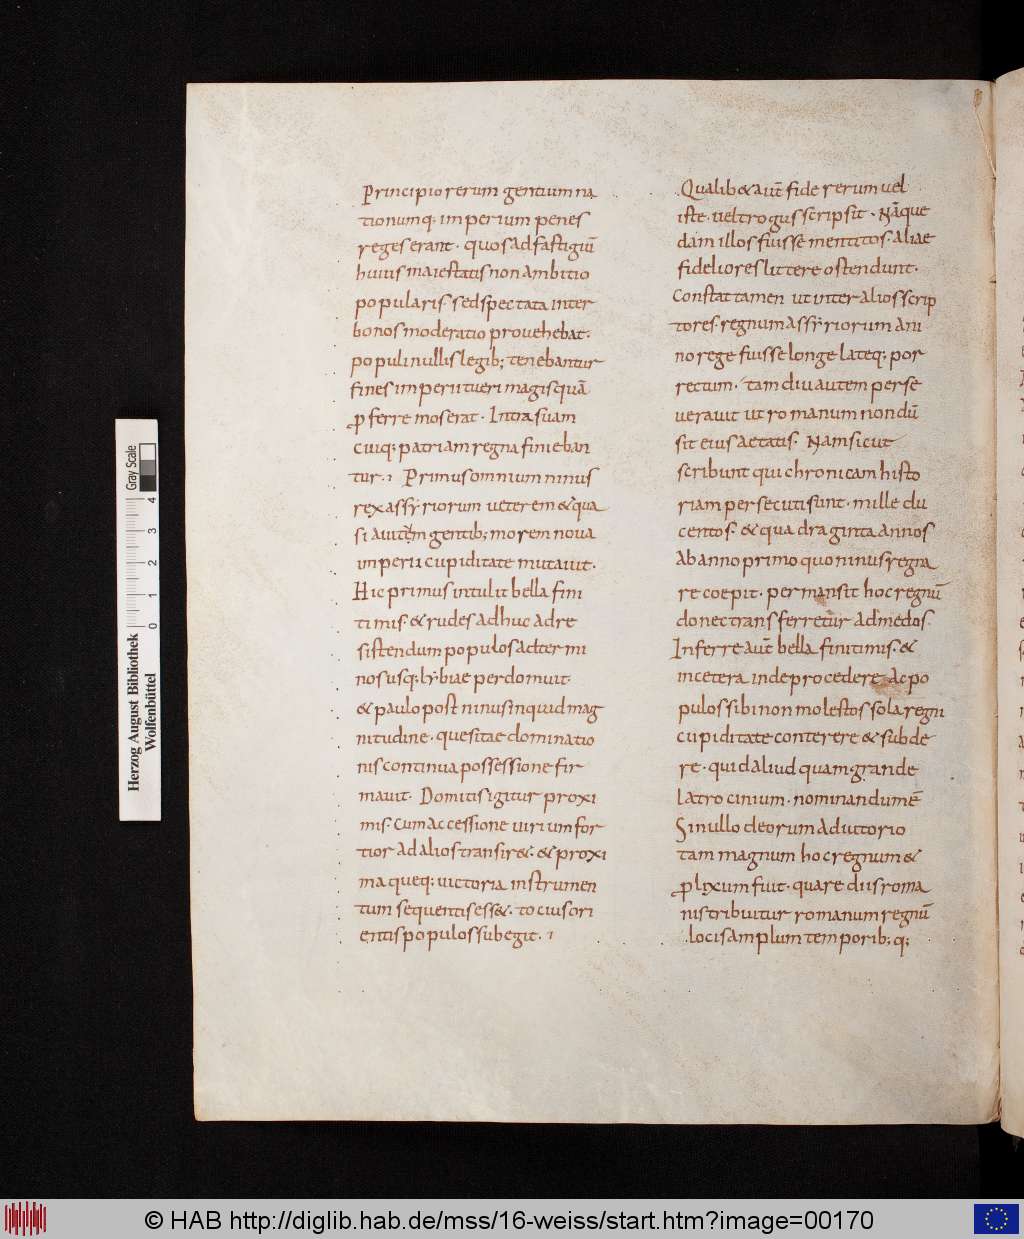 Principio rerum gentium na
tionumq; imperium penes
reges erant· quos ad fastigiū
huius maiestatis non ambitio
popularis· sed spectata inter
bonos moderatio provehebat·
populi nullis legib; tenebantur
fines imperii tueri magis quā
ꝓferre mos erat· Intra suam
cuiq; patriam regna finieban
tur· Primus omnium ninus
rex assyriorum veterem & qua
si avitum gentib; morem nova
imperii cupiditate mutavit·
Hic primus intulit bella fini
timis· & rudes adhuc ad re
sistendum populos ad termi
nos usq; lybiae perdomuit·
& paulo post ninus inquid mag
nitudine· quesitae dominatio
nis continua possessione fir
mavit· Domitis igitur proxi
mis· cum accessione virium for
tior ad alios transir&· & proxi
ma queq; victoria instrumen
tum sequentis ess&· tocius ori
entis populos subegit·
Qualib& autē fide rerum vel
iste· vel trogus scripsit· Nāque
dam illos fuisse mentitos· aliae
fideliores littere ostendunt·
Constat tamen ut inter alios scrip
tores· regnum assyriorum ani
no rege fuisse longe lateq; por
rectum· tam diu autem perse
veravit ut romanum nondū
sit eius aetatis· Nam sicut
scribunt qui chronicam histo
riam persecuti sunt· mille du
centos· & quadraginta annos
ab anno primo quo ninus regna
re coepit· permansit hoc regnū
donec transferretur ad medos·
Inferre autē bella finitimis· &
in cetera inde procedere Ac po
pulos sibi non molestos sola regni
cupiditate conterere & subde
re· quid aliud quam· grande
latrocinium· nominandum ē
Si nullo deorum adiutorio
tam magnum hoc regnum &
ꝓlixum fuit· quare diis roma
nis tribuitur romanum regnū
locis amplum temporib; q;
Herzog August Bibliothek
Wolfenbüttel
Gray Scale
0 1 2 3 4
© HAB http://diglib.hab.de/mss/16-weiss/start.htm?image=00170